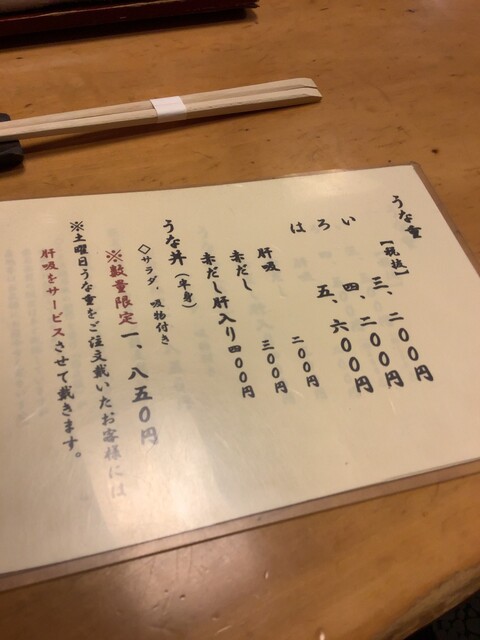 うな重
【税抜】
い 三、二〇〇円
ろ 四、二〇〇円
は 五、六〇〇円
肝吸 二〇〇円
赤だし 三〇〇円
赤だし肝入り 四〇〇円
うな丼（半身）
◇サラダ、吸物付き
※数量限定 一、八五〇円
※土曜日うな重をご注文戴いたお客様には
肝吸をサービスさせて戴きます。